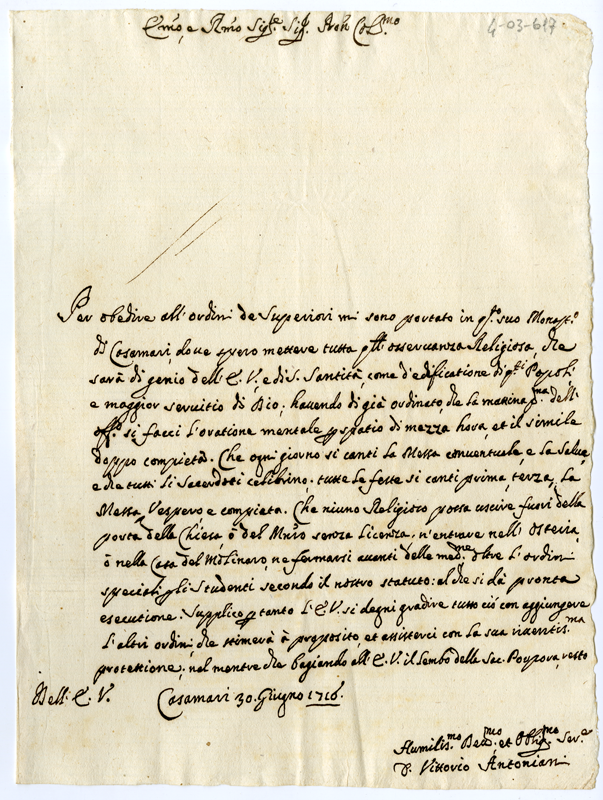 4-03-617.
Em͞o, e R͞mo Sig.re Sig. Pron Col.mo
Per obedire all'ordini de Superiori mi sono portato in q.to suo Monast.o
di Casamari dove spero mettere tutta q.lla osservanza Religiosa, che
sarà di genio dell'E. V. e di S. Santità, come d'edificatione di q.sti Popoli
e maggior servitio di Dio; havendo di già ordinato, che la mattina p.ma dell'
off.o si facci l'oratione mentale p spatio di mezza hora, et il simile
doppo compieta. Che ogni giorno si canti la Messa conventuale, e la Salve
e che tutti li Sacerdoti celibrino: tutte le feste si canti prima, terza, la
Messa, Vespero e compieta. Che niuno Religioso possa uscire fuori della
porta della Chiesa ò del Mn͞ro senza licenza, n'entrare nell'Osteria
ò nella Casa del Molinaro, ne fermarsi avanti delle med.me oltre l'ordini
speciali p gli Studenti secondo il nostro statuto: al che si dà pronta
esecutione. Supplico p tanto l'E. V. si degni gradire tutto ciò con aggiungere
l'altri ordini, che stimerà à proposito, et assisterci con la sua
protettione; nel mentre che bagiando all'E. V. il lembo della Sac. Porpora, resto
Dell'E. V. Casamari 30. Giugno 1716.
Humilis.mo Dev.mo et Oblig.mo Ser.e
D. Vittorio Antoniani